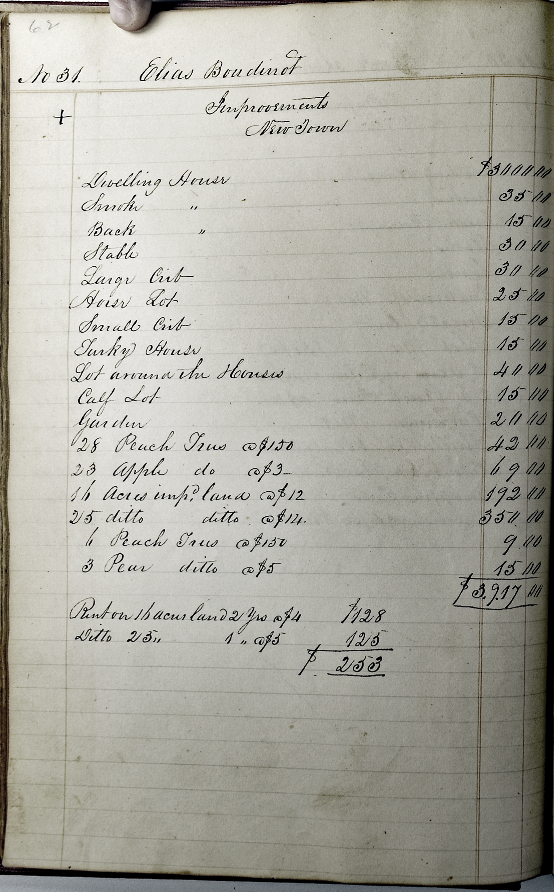 62
No 31. Elias Boudinot
+ Improvements
New Town
Dwelling House $3000 00
Smoke " 35 00
Back " 15 00
Stable 30 00
Large Crib 30 00
Horse Lot 25 00
Small Crib 15 00
Turky House 15 00
Lot around the Houses 40 00
Calf Lot 15 00
Garden 20 00
28 Peach Trees @$150 42 00
23 Apple do @$3- 69 00
16 Acres impd land @$12 192 00
25 ditto ditto @$14. 350 00
6 Peach Trees @$150 9 00
3 Pear ditto @$5 15 00
$3.917 00
Rent on 16 acres land 2 Yrs @$4 $128
Ditto 25 " 1 " @$5 125
$ 253